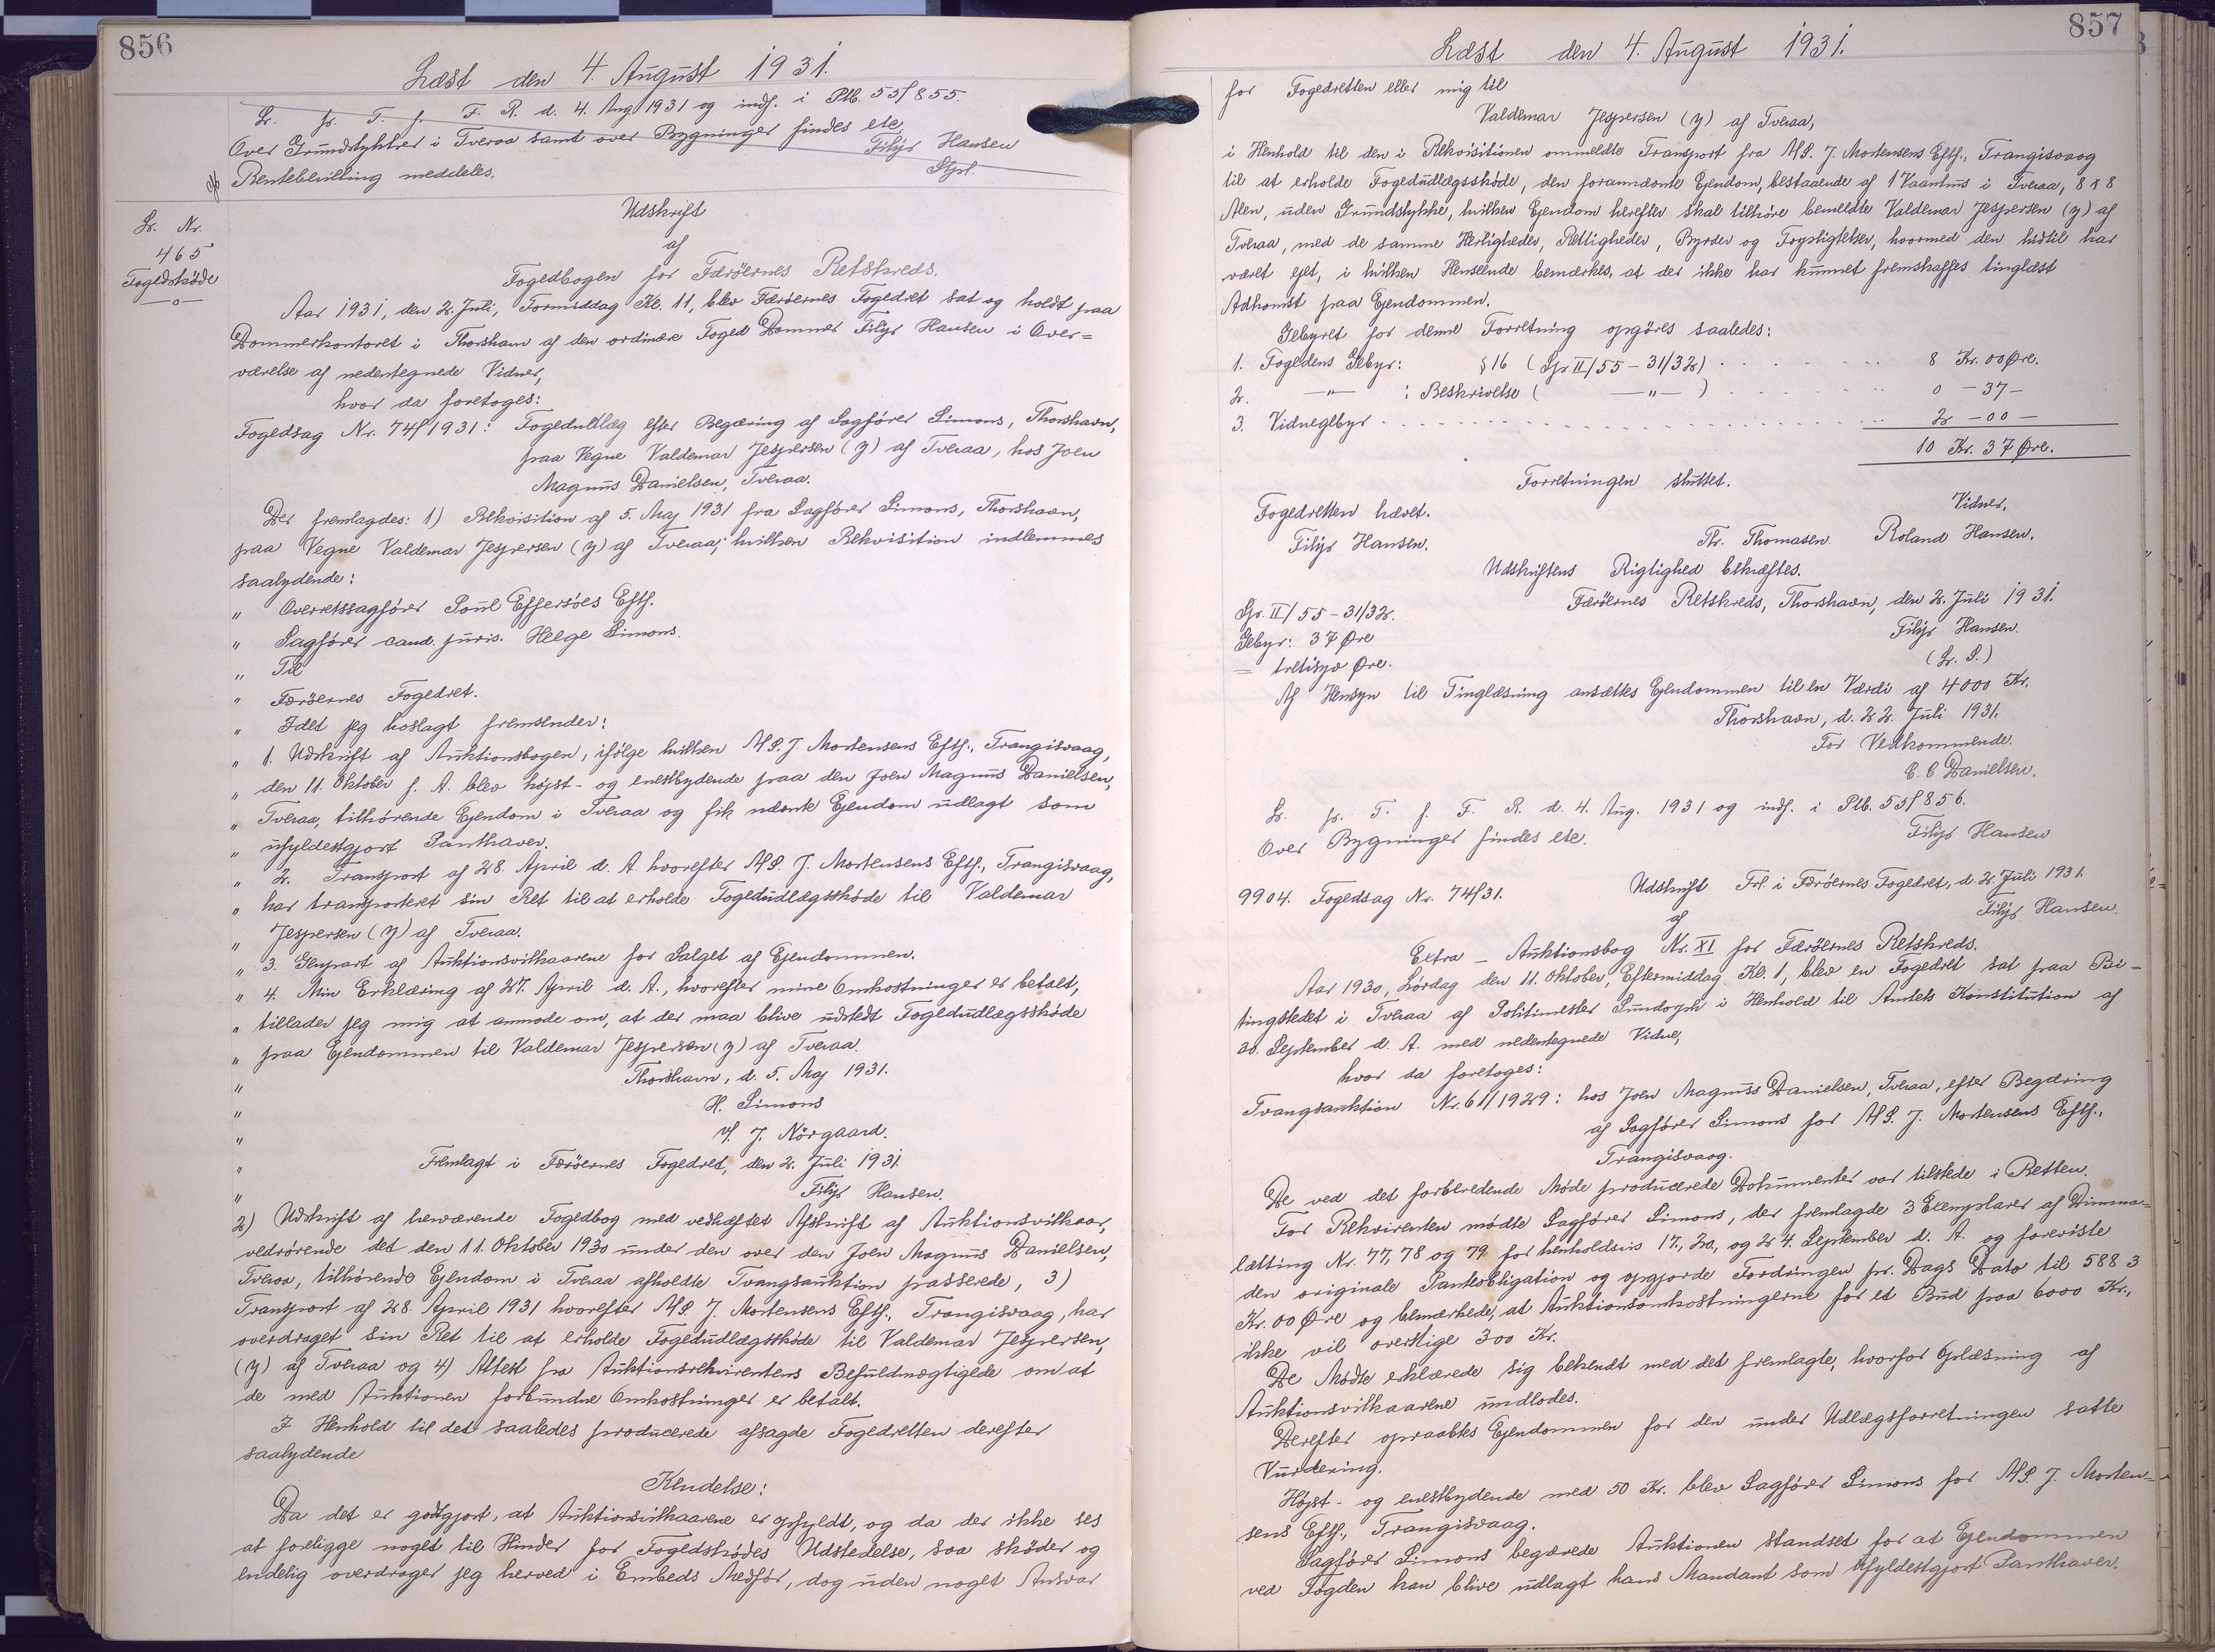 856
Læst den 4. August 1931.
L. pr. T. f. F. R. d. 4. Aug 1931 og indf. i Ptb. 55/855.
Over Grundstykker i Tveraa samt over Bygninger findes etc
Filip Hansen
Rentebevilling meddeles.
Stpl.
L. Nr.
465
Fogedskøde
—o—
Udskrift
af
Fogedbogen for Færøernes Retskreds.
Aar 1931, den 2. Juli, Formiddag Kl. 11, blev Færøernes Fogedret sat og holdt paa
Dommerkontoret i Thorshavn af den ordinære Foged Dommer Filip Hansen i Over=
værelse af nedentegnede Vidner,
hvor da foretoges:
Fogedsag Nr. 74/1931: Fogedudlæg efter Begæring af Sagfører Simons, Thorshavn,
paa Vegne Valdemar Jespersen (y) af Tveraa, hos Joen
Magnus Danielsen, Tveraa.
Der fremlagdes: 1) Rekvisition af 5. Maj 1931 fra Sagfører Simons, Thorshavn,
paa Vegne Valdemar Jespersen (y) af Tveraa, hvilken Rekvisition indlemmes
saalydende:
" Overretssagfører Poul Effersöes Eftf.
" Sagfører cand. juris. Helge Simons.
" Til
" Færøernes Fogedret.
" Idet jeg hoslagt fremsender:
" 1. Udskrift af Auktionsbogen, ifølge hvilken M.S. J. Mortensens Eftf., Trangisvaag,
" den 11. Oktober f. A. blev højst- og enestbydende paa den Joen Magnus Danielsen,
" Tveraa, tilhørende Ejendom i Tveraa og fik nævnte Ejendom udlagt som
" ufyldestgjort Panthaver.
" 2. Transport af 28. April d. A. hvorefter M.S. J. Mortensens Eftf., Trangisvaag,
" har transporteret sin Ret til at erholde Fogedudlægsskøde til Valdemar
" Jespersen (y) af Tveraa.
" 3. Genpart af Auktionsvilkaarene for Salget af Ejendommen.
" 4. Min Erklæring af 27. April d. A., hvorefter mine Omkostninger er betalt,
" tillader jeg mig at anmode om, at der maa blive udstedt Fogedudlægsskøde
" paa Ejendommen til Valdemar Jespersen (y) af Tveraa.
" Thorshavn, d. 5. Maj 1931.
" H. Simons
" v/. J. Nörgaard.
" Fremlagt i Færøernes Fogedret, den 2. Juli 1931.
" Filip Hansen.
2) Udskrift af herværende Fogedbog med vedhæftet Afskrift af Auktionsvilkaar,
vedrørende det den 11. Oktober 1930 under den over den Joen Magnus Danielsen,
Tveraa, tilhørende Ejendom i Tveraa afholdte Tvangsauktion passerede, 3)
Transport af 28. April 1931 hvorefter M.S. J. Mortensens Eftf., Trangisvaag, har
overdraget sin Ret til at erholde Fogedudlægsskøde til Valdemar Jespersen,
(y) af Tveraa og 4) Attest fra Auktionsrekvirentens Befuldmægtigede om at
de med Auktionen forbundne Omkostninger er betalt.
I Henhold til det saaledes producerede afsagde Fogedretten derefter
saalydende
Kendelse:
Da det er godtgjort, at Auktionsvilkaarene er opfyldt, og da der ikke ses
at foreligge noget til Hinder for Fogedskødes Udstedelse, saa skøder og
endelig overdrager jeg herved i Embeds Medfør, dog uden noget Ansvar
857
Læst den 4. August 1931.
for Fogedretten eller mig til
Valdemar Jespersen (y) af Tveraa,
i Henhold til den i Rekvisitionen ommeldte Transport fra M.S. J. Mortensens Eftf., Trangisvaag
til at erholde Fogedudlægsskøde, den forannævnte Ejendom, bestaaende af 1 Vaanhus i Tveraa, 8 x 8
Alen, uden Grundstykke, hvilken Ejendom herefter skal tilhøre bemeldte Valdemar Jespersen (y) af
Tveraa, med de samme Herligheder, Rettigheder, Byrder og Forpligtelser, hvormed den hidtil har
været ejet, i hvilken Henseende bemærkes, at der ikke har kunnet fremskaffes tinglæst
Adkomst paa Ejendommen.
Gebyret for denne Forretning opgöres saaledes:
1. Fogedens Gebyr: §16 (Gr. II/55 - 31/32) 8 Kr. 00 Øre.
2. —"— : Beskrivelse ( —"— ) 0 - 37 -
3. Vidnegebyr 2 - 00 -
10 Kr. 37 Øre.
Forretningen sluttet.
Fogedretten hævet.
Vidner.
Filip Hansen. Th. Thomasen. Roland Hansen.
Udskriftens Rigtighed bekræftes.
Gr. II/55-31/32. Færøernes Retskreds, Thorshavn, den 2. Juli 1931.
Gebyr: 37 Øre Filip Hansen.
= tretisyv Øre. (L. S.)
Af Hensyn til Tinglæsning ansættes Ejendommen til en Værdi af 4000 Kr.
Thorshavn, d. 22. Juli 1931.
For Vedkommende.
C. C. Danielsen.
L. pr. T. f. F. R. d. 4. Aug. 1931 og indf. i Ptb. 55/856.
Over Bygninger findes etc. Filip Hansen
9904. Fogedsag Nr. 74/31. Udskrift Frl. i Færøernes Fogedret, d. 2. Juli 1931.
af Filip Hansen.
Extra - Auktionsbog Nr. XI for Færøernes Retskreds.
Aar 1930, Lördag den 11. Oktober, Eftermiddag Kl. 1, blev en Fogedret sat paa Bi-
tingstedet i Tveraa af Politimester Sundorph i Henhold til Amtets Konstitution af
20. September d. A. med nedentegnede Vidne,
hvor da foretoges:
Tvangsauktion Nr. 61/1929: hos Joen Magnus Danielsen, Tveraa, efter Begæring
af Sagfører Simons for M.S. J. Mortensens Eftf.,
Trangisvaag.
De ved det forberedende Møde producerede Dokumenter var tilstede i Retten.
For Rekvirenten mødte Sagfører Simons, der fremlagde 3 Exemplarer af Dimma=
lætting Nr. 77, 78 og 79 for henholdsvis 17., 20., og 24. September d. A. og foreviste
den originale Panteobligation og opgjorde Fordringen pr. Dags Dato til 5883
Kr. 00 Øre og bemærkede, at Auktionsomkostningerne for et Bud paa 6000 Kr.,
ikke vil overstige 300 Kr.
De Mødte erklærede sig bekendt med det fremlagte, hvorfor Oplæsning af
Auktionsvilkaarene undlodes.
Derefter opraabtes Ejendommen for den under Udlægsforretningen satte
Vurdering.
Højst- og enestbydende med 50 Kr. blev Sagfører Simons for M.S. J. Morten=
sens Eftf., Trangisvaag.
Sagfører Simons begærede Auktionen standset for at Ejendommen
ved Fogden kan blive udlagt hans Mandant som ufyldestgjort Panthaver.